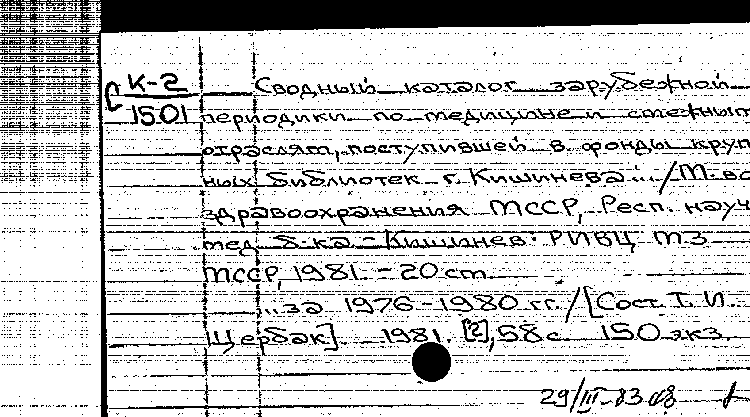 К-2
1501
Сводный каталог зарубежной
периодики по медицине и смежным
отраслям, поступившей в фонды круп
ных библиотек г. Кишинева... /М-во
здравоохранения МССР, Респ. науч
мед. б-ка - Кишинев: РИВЦ МЗ
МССР, 1981. - 20 см.
...за 1976-1980 гг. /[Сост. Т. И.
Щербак] 1981. [2], 58 с. 150 экз.
29/III-83